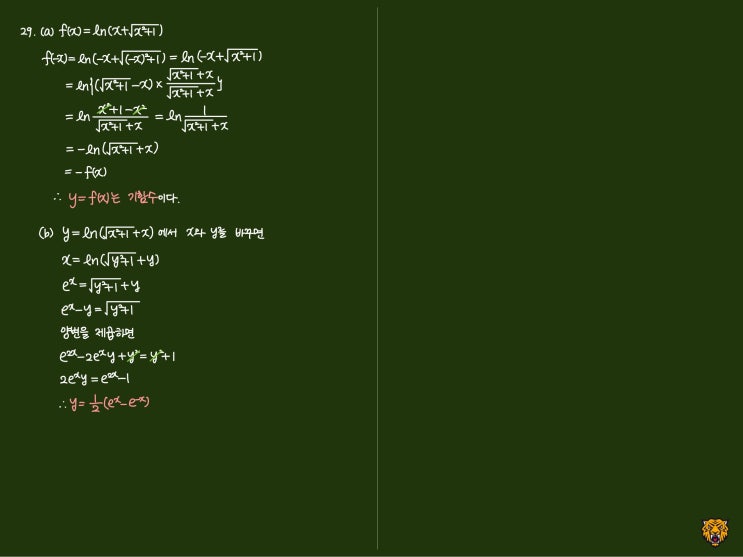 29. (a) f(x)=ln(x+√(x²+1))
f(-x)=ln(-x+√((-x)²+1))=ln(-x+√(x²+1))
=ln{(√(x²+1)-x)×(√(x²+1)+x)/(√(x²+1)+x)}
=ln (x²+1-x²)/(√(x²+1)+x) = ln 1/(√(x²+1)+x)
=-ln(√(x²+1)+x)
=-f(x)
∴ y=f(x)는 기함수이다.
(b) y=ln(√(x²+1)+x)에서 x와 y를 바꾸면
x=ln(√(y²+1)+y)
eˣ=√(y²+1)+y
eˣ-y=√(y²+1)
양변을 제곱하면
e²ˣ-2eˣy+y²=y²+1
2eˣy=e²ˣ-1
∴ y=1/2(eˣ-e⁻ˣ)